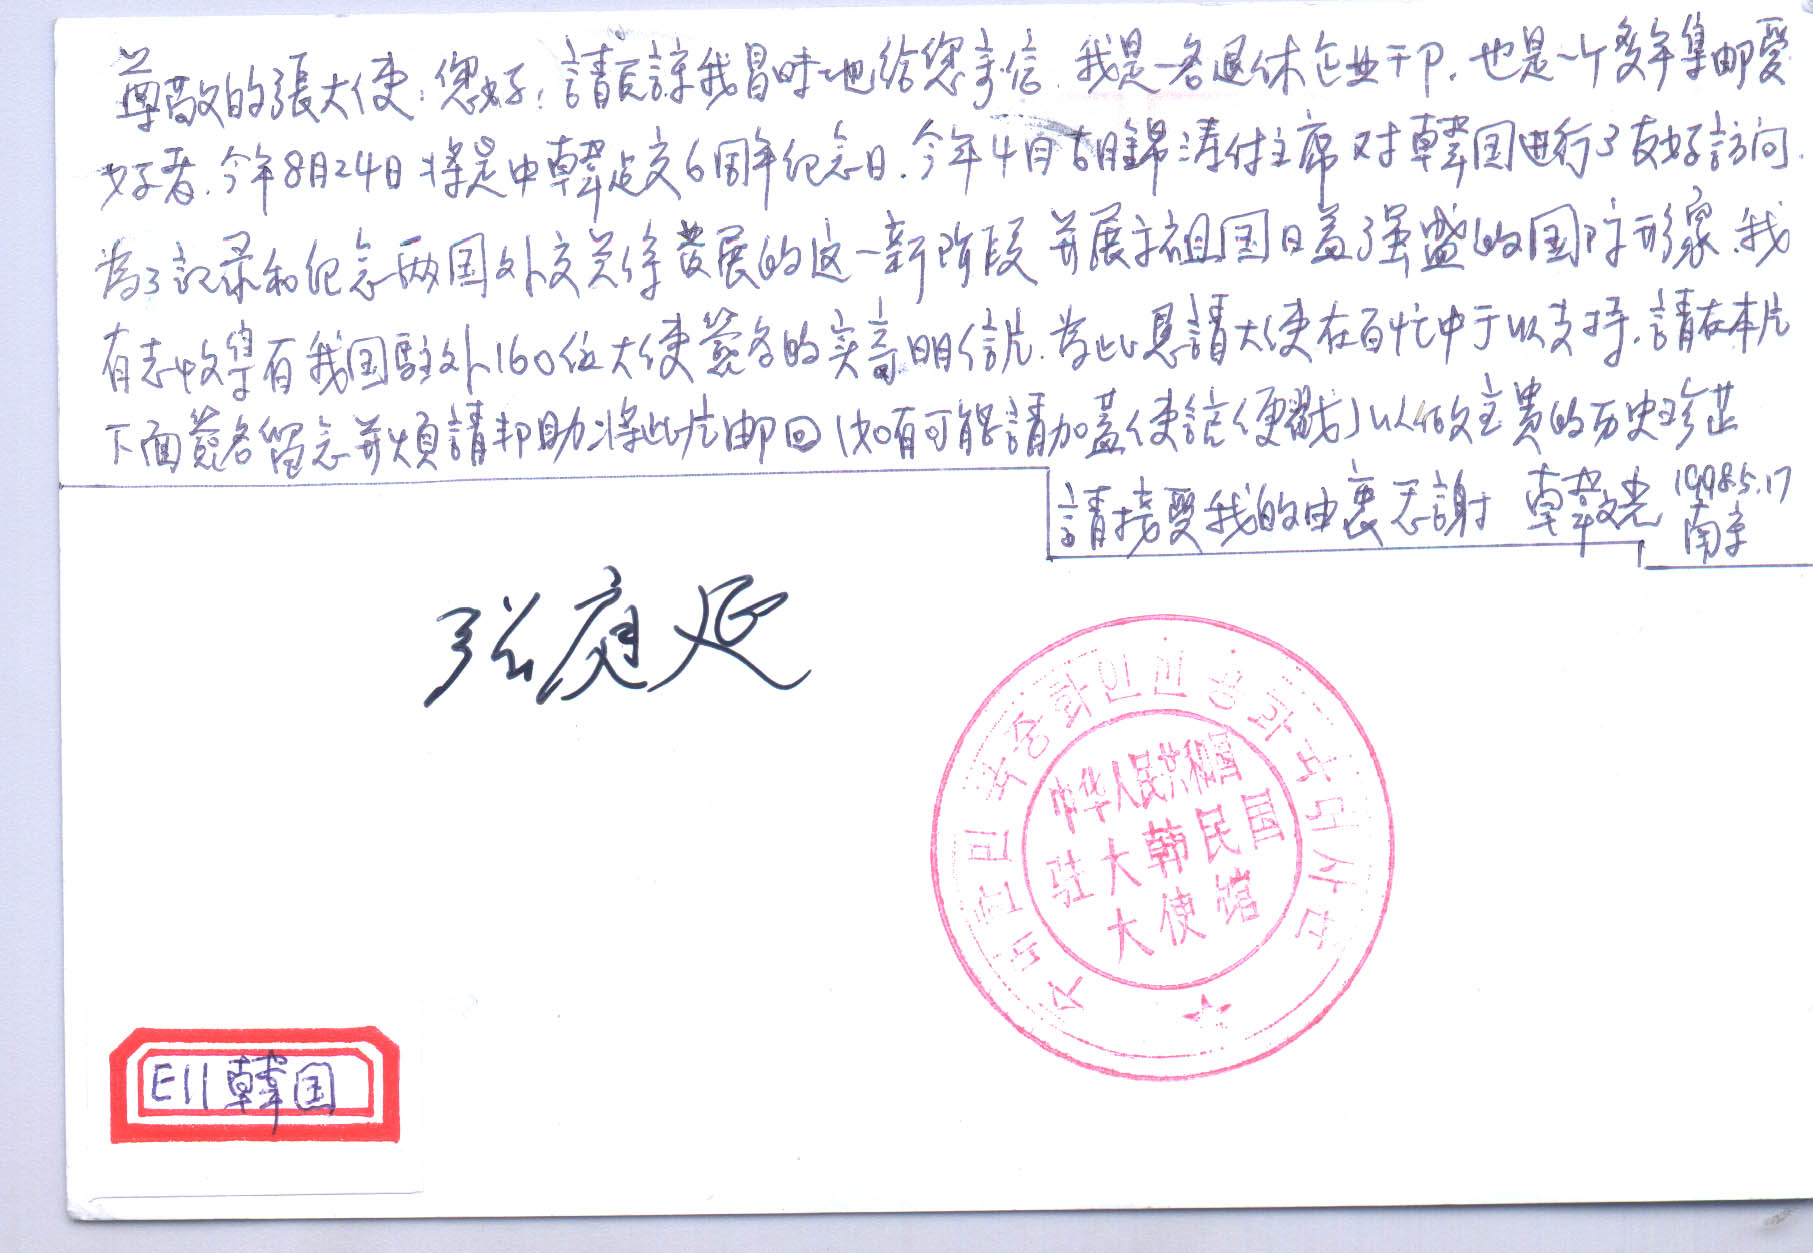 尊敬的張大使:您好,請原諒我冒昧地給您寄信.我是一名退休企业干卩,也是一个多年集邮爱
好者.今年8月24日将是中韓建交6周年纪念日.今年4月胡錦涛付主席对韓国进行了友好訪问.
为了記录和纪念两国外交关係發展的这一新阶段并展示祖国日益强盛的国际形象.我
有志收集有我国駐外160位大使簽名的实寄明信片.为此恳請大使在百忙中予以支持.請在本片
下面簽名留念并煩請邦助将此片邮回(如有可能請加蓋使館便戳)以做宝貴的历史珍藏
請接受我的由衷感謝 韓文光 1998.5.17
南京
张庭延
주대한민국중화인민공화국대사관
中华人民共和国
驻大韩民国
大使馆
E11韓国